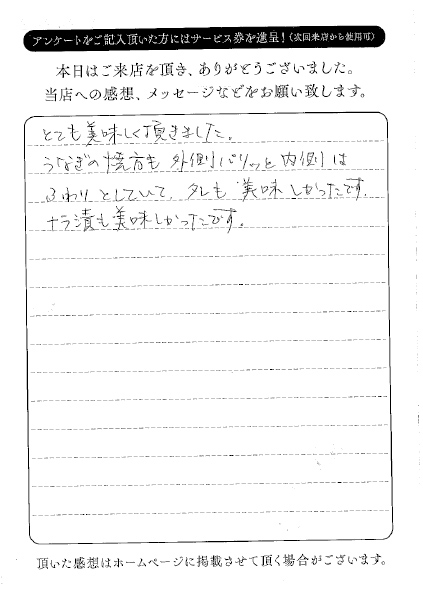 アンケートをご記入頂いた方にはサービス券を進呈!(次回来店から使用可)
本日はご来店を頂き、ありがとうございました。
当店への感想、メッセージなどをお願い致します。
とても美味しく頂きました。
うなぎの焼方も外側パリッと内側は
ふわりとしていて、タレも美味しかったです。
ナラ漬も美味しかったです。
頂いた感想はホームページに掲載させて頂く場合がございます。